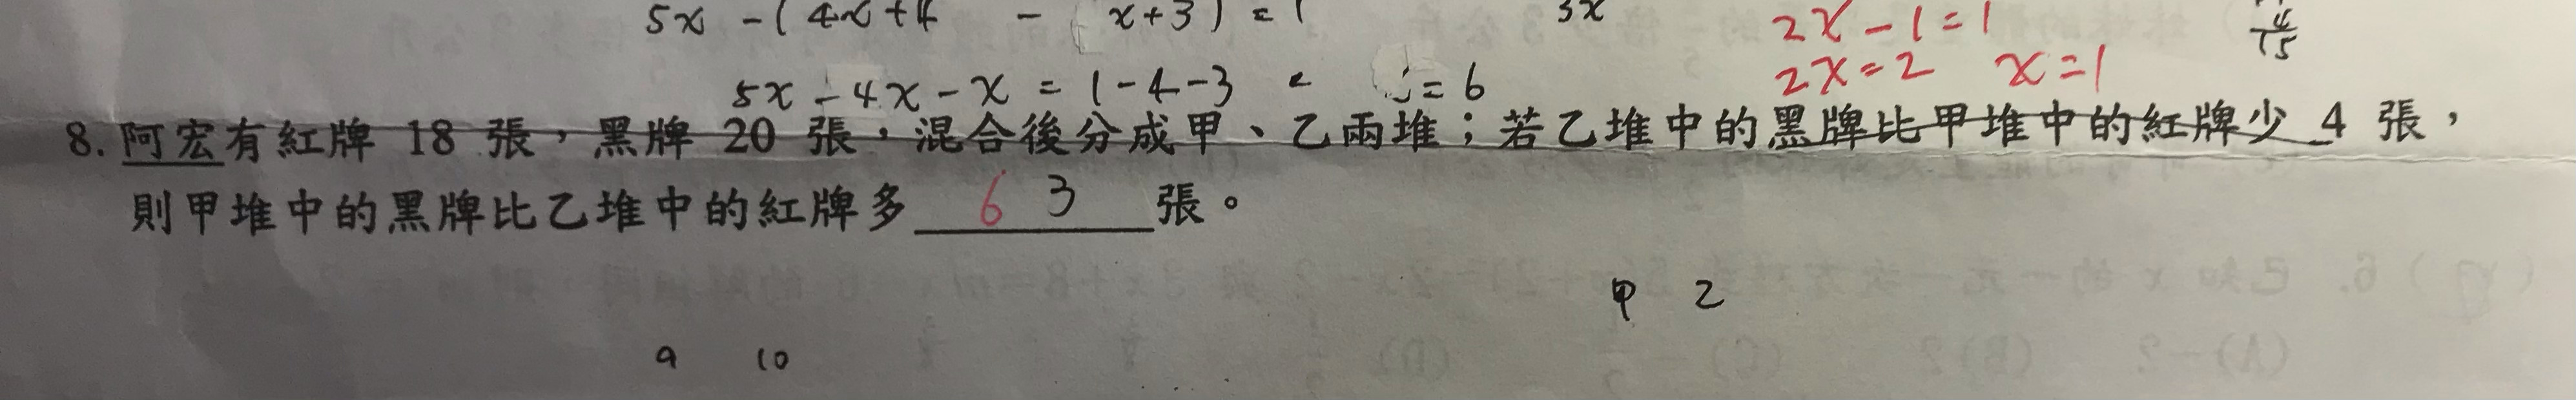 5x -(4x+4 - x+3) = 1
3x
2x-1=1
4
15
5x-4x-x = 1-4-3
=6
2x=2 x=1
8. 阿宏有紅牌 18 張，黑牌 20 張，混合後分成甲、乙兩堆；若乙堆中的黑牌比甲堆中的紅牌少 4 張，
則甲堆中的黑牌比乙堆中的紅牌多 6 3 張。
甲 乙
9 10